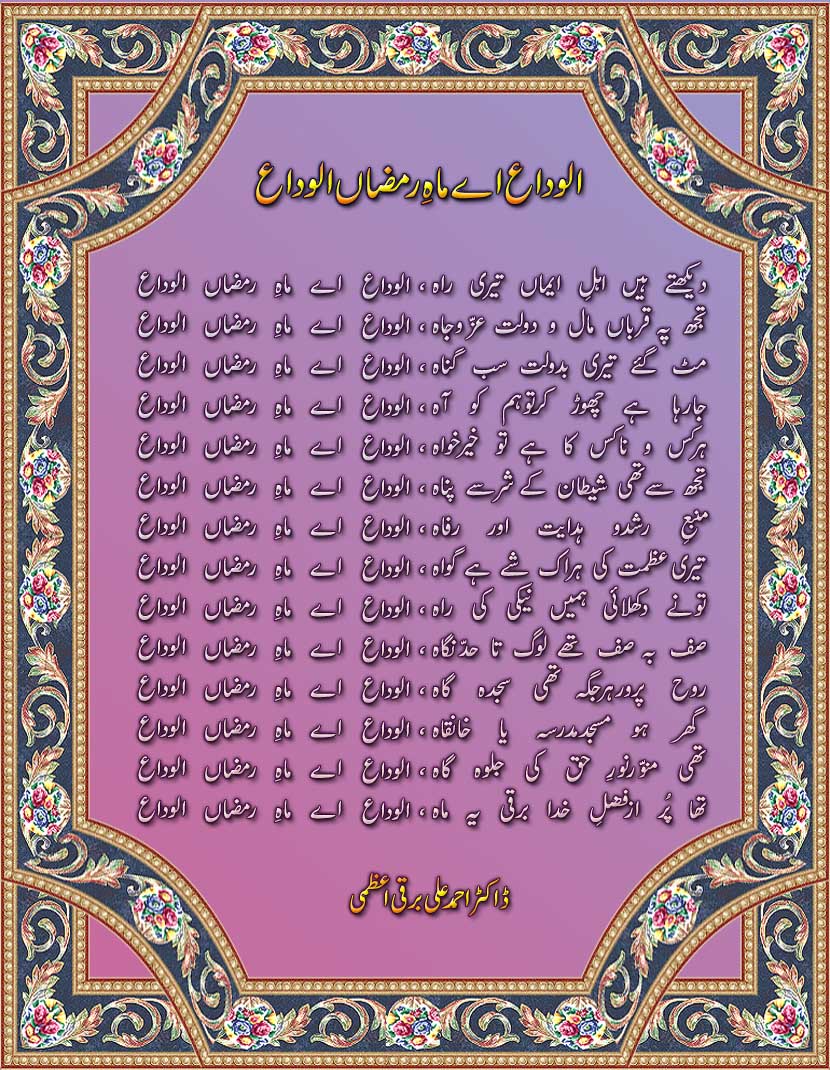 الوداع اے ماہِ رمضاں الوداع
دیکھتے ہیں اہلِ ایماں تیری راہ ، الوداع اے ماہِ رمضاں الوداع
تجھ پہ قرباں مال و دولت عزّ وجاہ ، الوداع اے ماہِ رمضاں الوداع
مٹ گئے تیری بدولت سب گناہ ، الوداع اے ماہِ رمضاں الوداع
جارہا ہے چھوڑ کرتوہم کو آہ ، الوداع اے ماہِ رمضاں الوداع
ہرکس و ناکس کا ہے تو خیرخواہ ، الوداع اے ماہِ رمضاں الوداع
تجھ سےتھی شیطان کے شرسے پناہ ، الوداع اے ماہِ رمضاں الوداع
منبعِ رشدو ہدایت اور رفاہ ، الوداع اے ماہِ رمضاں الوداع
تیری عظمت کی ہراک شے ہے گواہ ، الوداع اے ماہِ رمضاں الوداع
تونے دکھلائی ہمیں نیکی کی راہ ، الوداع اے ماہِ رمضاں الوداع
صف بہ صف تھے لوگ تا حدّ نگاہ ، الوداع اے ماہِ رمضاں الوداع
روح پرورہرجگہ تھی سجدہ گاہ ، الوداع اے ماہِ رمضاں الوداع
گھر ہو مسجدمدرسہ یا خانقاہ ، الوداع اے ماہِ رمضاں الوداع
تھی منوّرنورِ حق کی جلوہ گاہ ، الوداع اے ماہِ رمضاں الوداع
تھا پُر ازفضلِ خدا برقی یہ ماہ ، الوداع اے ماہِ رمضاں الوداع
ڈاکٹراحمدعلی برقی اعظمی